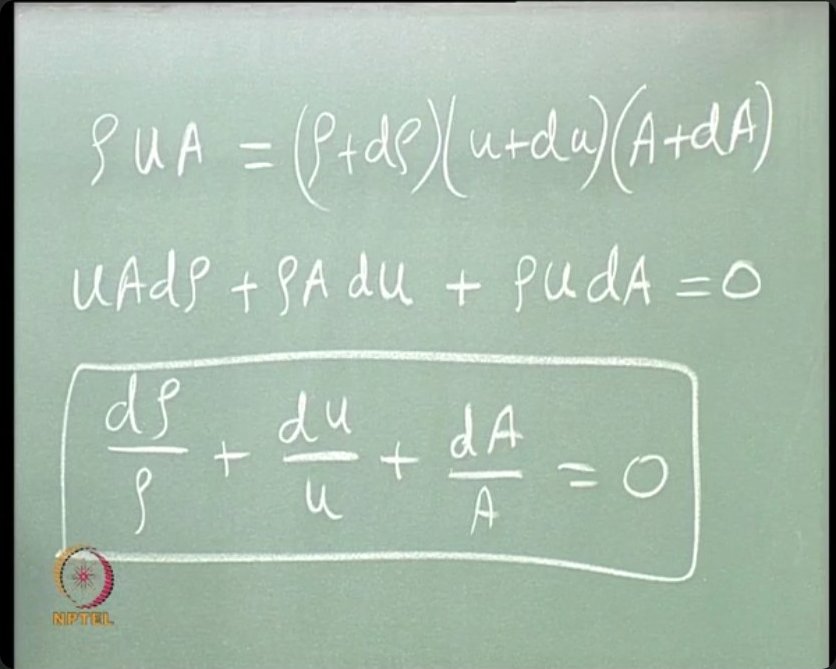 ρuA = (ρ+dρ)(u+du)(A+dA)
uAdρ + ρAdu + ρudA = 0
dρ/ρ + du/u + dA/A = 0
NPTEL